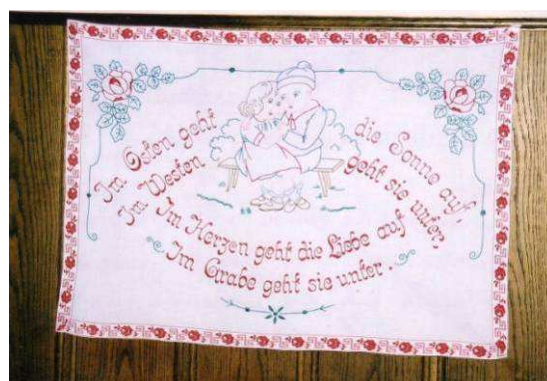 Im Osten geht die Sonne auf,
Im Westen geht sie unter,
Im Herzen geht die Liebe auf
Im Grabe geht sie unter.